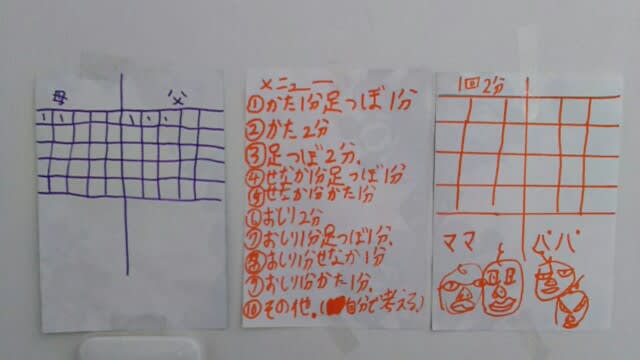 母 父
メニュー
①かた1分足つぼ1分
②かた2分
③足つぼ2分.
④せなか1分足つぼ1分
⑤せなか1分かた1分
⑥おしり2分
⑦おしり1分足つぼ1分.
⑧おしり1分せなか1分
⑨おしり1分かた1分.
⑩その他.(自分で考える.)
1回2分
ママ パパ